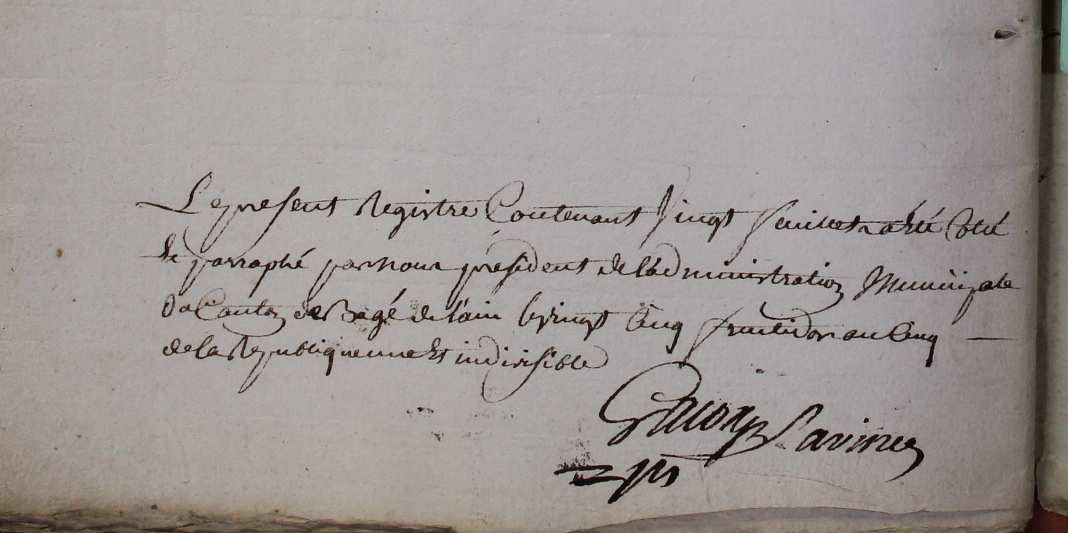 Le present Registre Contenant Vingt feuillets a été Coté
et parraphé par nous président de l'administration Municipale
du Canton de Bagé de l'ain le vingt Cinq fructidor an Cinq
de la Republique une Et indivisible